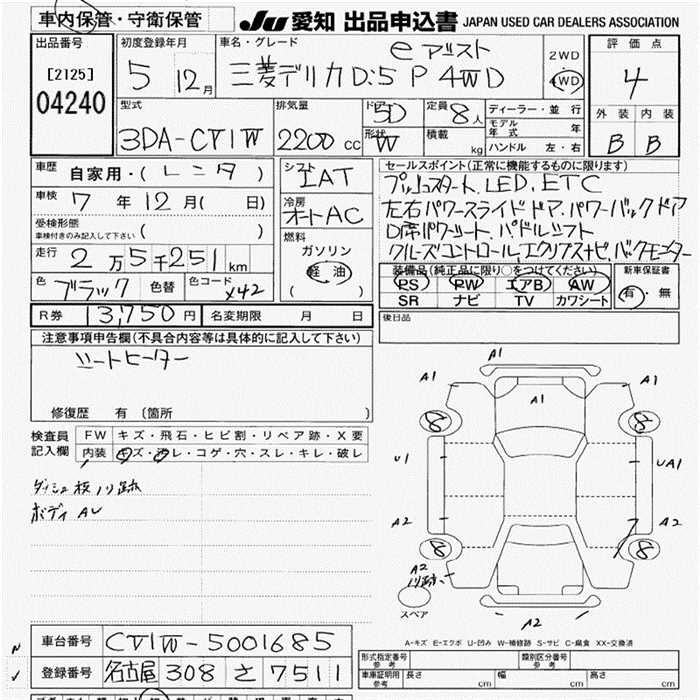 車内保管・守衛保管
JU 愛知 出品申込書 JAPAN USED CAR DEALERS ASSOCIATION
出品番号
[2125]
04240
初度登録年月
5 12月
車名・グレード
e アシスト
三菱デリカD:5 P 4WD
2WD
4WD
評価点
4
外装 内装
B B
型式
3DA-CV1W
排気量
2200 cc
ドア 5D
形状 W
定員 8人
積載 kg
ディーラー・並行
モデル年式 年
ハンドル 左・右
車歴 自家用・(レンタ)
車検 7年12月(日)
受検形態
車検付きのみ記入して下さい ( )
走行 2万5千251km
色 ブラック 色替 色コード X42
シフト IAT
冷房 オートAC
燃料
ガソリン
軽油
( )
セールスポイント(正常に機能するものに限ります)
プッシュスタート、LED、ETC
左右パワースライドドア、パワーバックドア
D席パワーシート、パドルシフト
クルーズコントロール、エクリプスナビ、バックモニター
装備品(純正品に限り○をつけてください)
PS PW エアB AW
SR ナビ TV カワシート
新車保証書
有・無
R券 13,750円 名変期限 月 日
後日品
注意事項申告欄(不具合内容等は具体的に記入して下さい)
シートヒーター
修復歴 有 (箇所 )
検査員記入欄
FW キズ・飛石・ヒビ割・リペア跡・X要
内装 キズ・汚レ・コゲ・穴・スレ・キレ・破レ
ダッシュ板ノリ跡
ボディ AU
A1
A1 A1 A1
8 8
U1 UA1
A2 A2
8 8
A2
ノリ跡
スペア
A2
A-キズ E-エクボ U-凹み W-補修跡 S-サビ C-腐食 XX-交換済
車台番号 CV1W-5001685
登録番号 名古屋 308 さ 7511
形式指定番号 参考
類別区分番号 参考
車庫証明用 参考 長さ cm 幅 cm 高さ cm